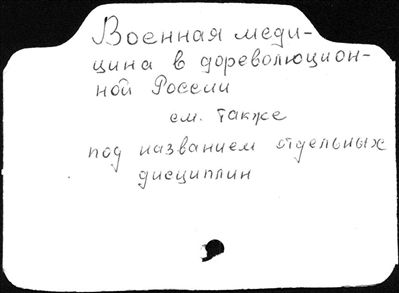 Военная меди-
цина в дореволюцион-
ной России
см. также
под названием отдельных
дисциплин